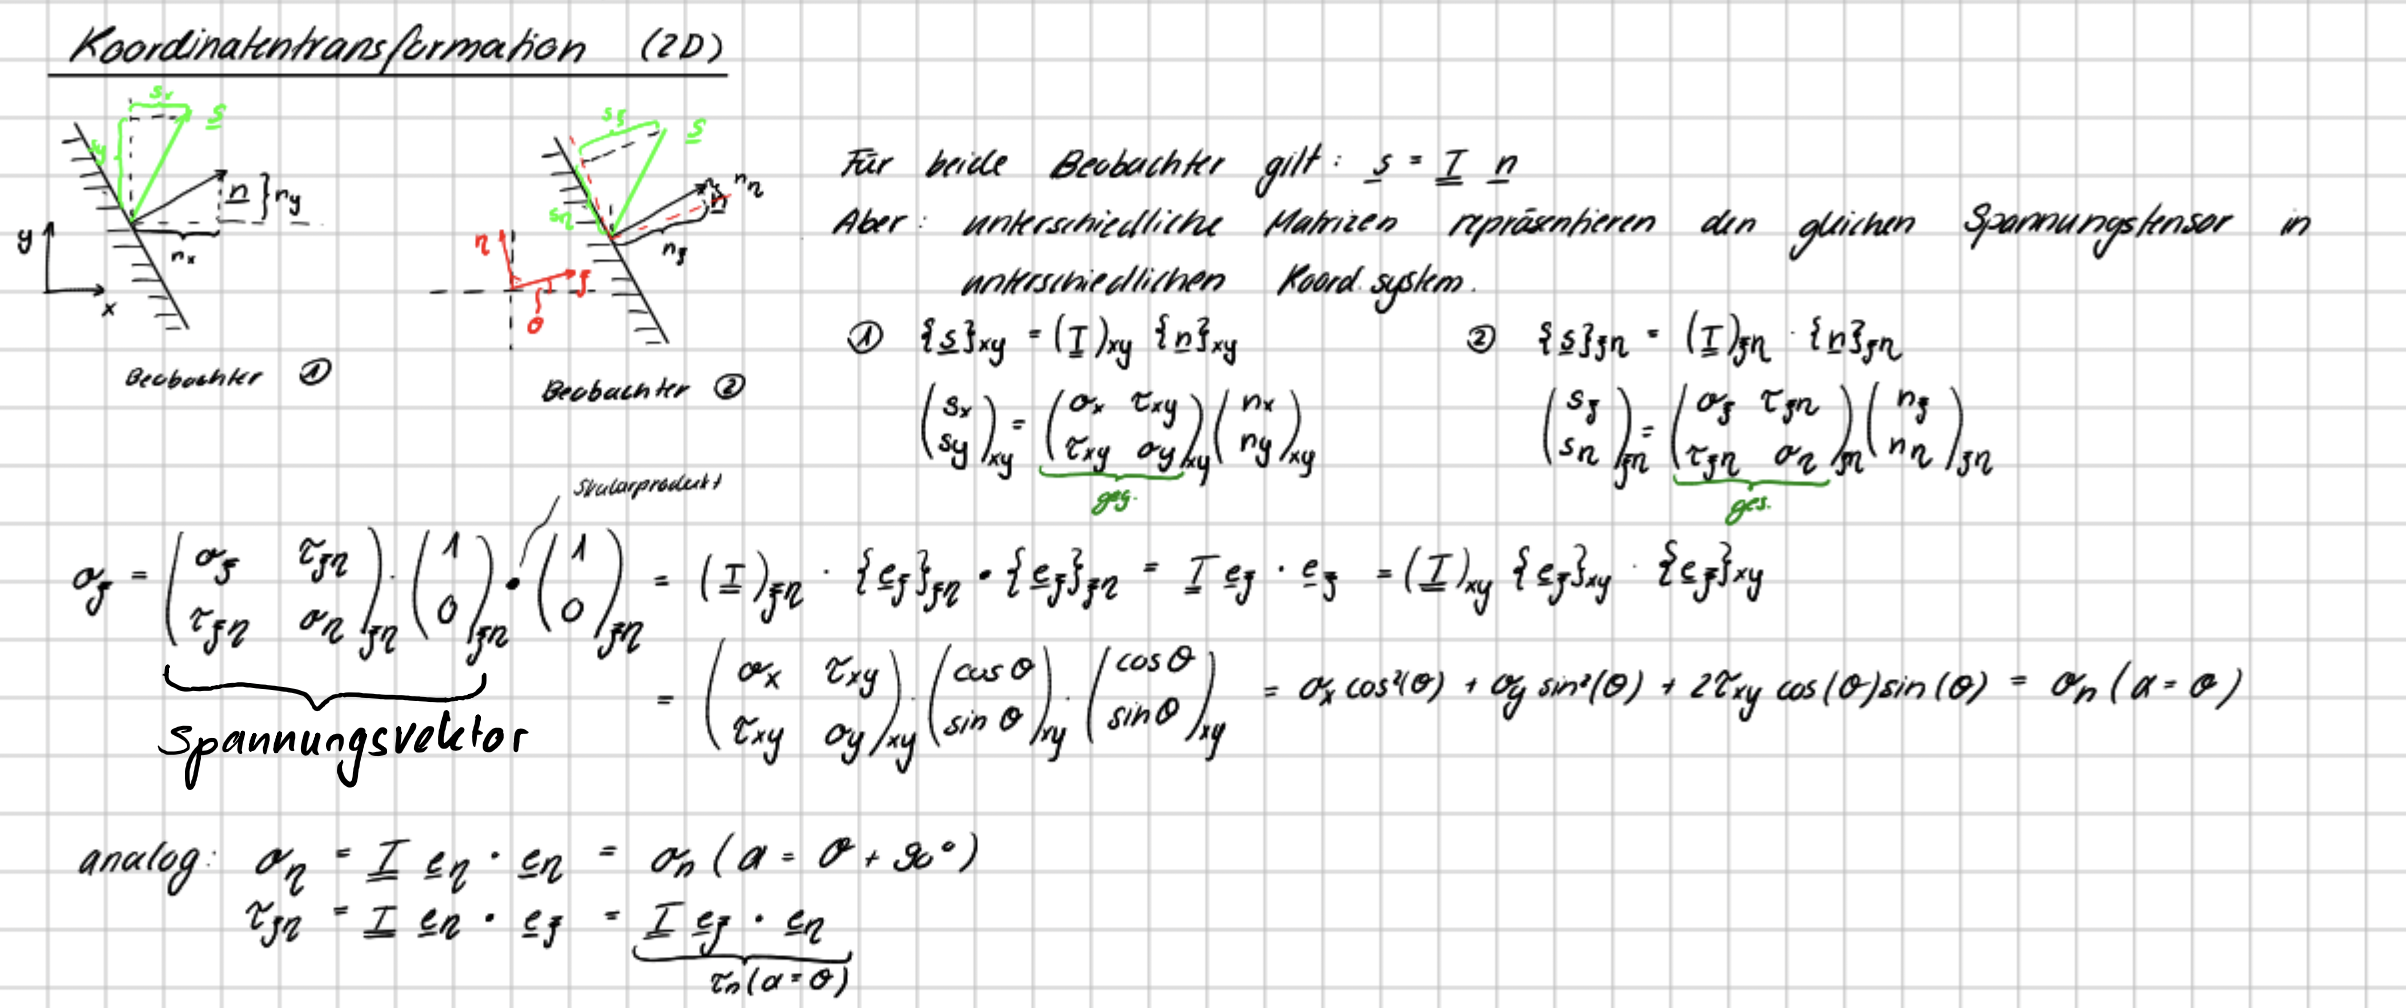 Koordinatentransformation (2D)
sx s
sy
n } ny
nx
y
x
Beobachter ①
sξ s
sη
n nη
nξ
η
ξ
θ
Beobachter ②
Für beide Beobachter gilt: s = T n
Aber: unterschiedliche Matrizen repräsentieren den gleichen Spannungstensor in
unterschiedlichen Koord.system.
① {s}xy = (T)xy {n}xy
(sx sy)xy = (σx τxy τxy σy)xy (nx ny)xy
geg.
② {s}ξη = (T)ξη · {n}ξη
(sξ sη)ξη = (σξ τξη τξη ση)ξη (nξ nη)ξη
ges.
Skalarprodukt
σξ = (σξ τξη τξη ση)ξη · (1 0)ξη • (1 0)ξη = (T)ξη · {eξ}ξη • {eξ}ξη = T eξ · eξ = (T)xy {eξ}xy · {eξ}xy
Spannungsvektor
= (σx τxy τxy σy)xy · (cos θ sin θ)xy · (cos θ sin θ)xy = σx cos²(θ) + σy sin²(θ) + 2τxy cos(θ)sin(θ) = σn(α = θ)
analog: ση = T eη · eη = σn(α = θ + 90°)
τξη = T eη · eξ = T eξ · eη
τn(α = θ)